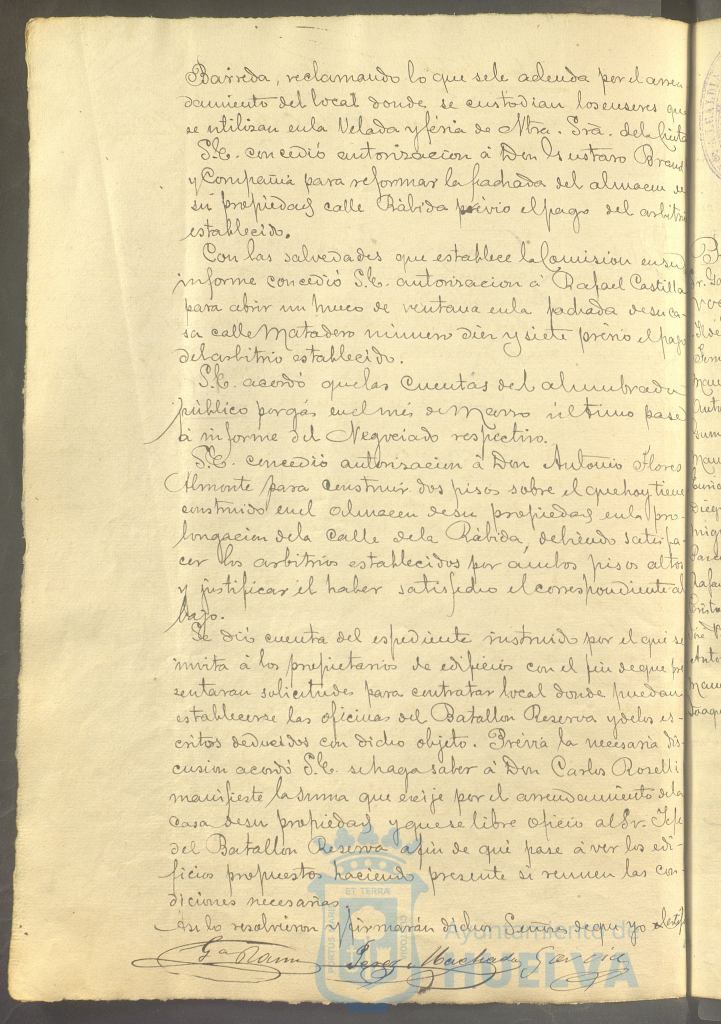 Barreda, reclamando lo que sele adeuda por el arren
damiento del local donde se custodian los enseres que
se utilizan en la Velada y féria de Ntra. Sra. de la Cinta
S.E. concedió autorizacion á Don Gustavo Brand
y Compañia para reformar la fachada del almacen de
su propiedad calle Rábida prévio el pago del arbitrio
establecido.
Con las salvedades que establece la Comision en su
informe concedió S.E. autorizacion á Rafael Castilla
para abrir un hueco de ventana en la fachada de su ca
sa calle Matadero número diez y siete prévio el pago
del arbitrio establecido.
S.E. acordó que las cuentas del alumbrado
público por gás en el més de Marzo último pase
á informe del Negociado respectivo.
S.E. concedió autorizacion á Don Antonio Flores
Almonte para construir dos pisos sobre el que hoy tiene
construido en el almacen de su propiedad en la pro-
longacion de la calle de la Rábida, debiendo satisfa
cer los arbitrios establecidos por ambos pisos altos
y justificar el haber satisfecho el correspondiente al
bajo.
Se dió cuenta del espediente instruido por el que se
invita á los propietarios de edificios con el fin de que pre
sentaran solicitudes para contratar local donde puedan
establecerse las oficinas del Batallon Reserva y de los es-
critos deducidos con dicho objeto. Prévia la necesaria dis
cusion acordó S.E. se haga saber á Don Carlos Roselli
manifieste la suma que exije por el arrendamiento de la
casa de su propiedad y que se libre oficio al Sr. Jefe
del Batallon Reserva a fin de que pase á ver los edi-
ficios propuestos haciendo presente si reunen las con
diciones necesarias.
Asi lo resolvieron y firmarán dichos Señores de que yo certifico
Ga Ramos Perez Machado Garcia
Ayuntamiento de
HUELVA